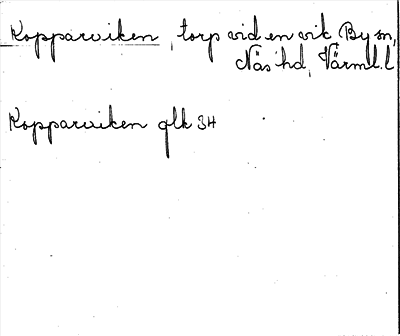 Kopparviken, torp vid en vik, By sn,
Näs hd, Värml. l
Kopparviken glk 34